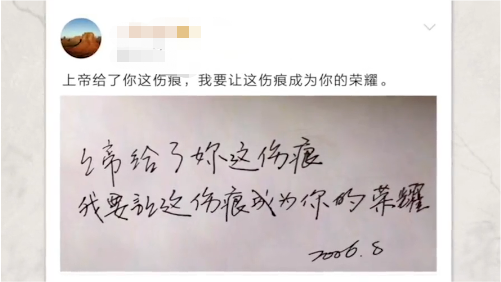 上帝给了你这伤痕，我要让这伤痕成为你的荣耀。
上帝给了妳这伤痕
我要让这伤痕成为你的荣耀
2006.8